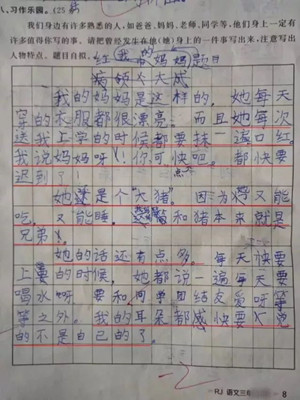 八、习作乐园。(25
我们身边有许多熟悉的人,如爸爸、妈妈、老师、同学等,他们身上一定有
许多值得你写的事。请把曾经发生在他(她)身上的一件事写出来,注意写出
人物特点。题目自拟。
我的妈妈
我的妈妈是这样的,她每天
穿的衣服都很漂亮。而且她每次
送我上学的时候都要抹 口红
我说妈妈呀!你可快 吧。都快要
迟到了!
她 是个"大猪"。因为 又能
吃,又能睡。 和猪本来就是
兄弟
她的话还有点多。每天快要
上 的时候,她都说一遍每天要
喝水呀,要和同学团结友爱呀等
等之外。我的耳朵都感快要
的不是自己的了。
RJ 语文三
8